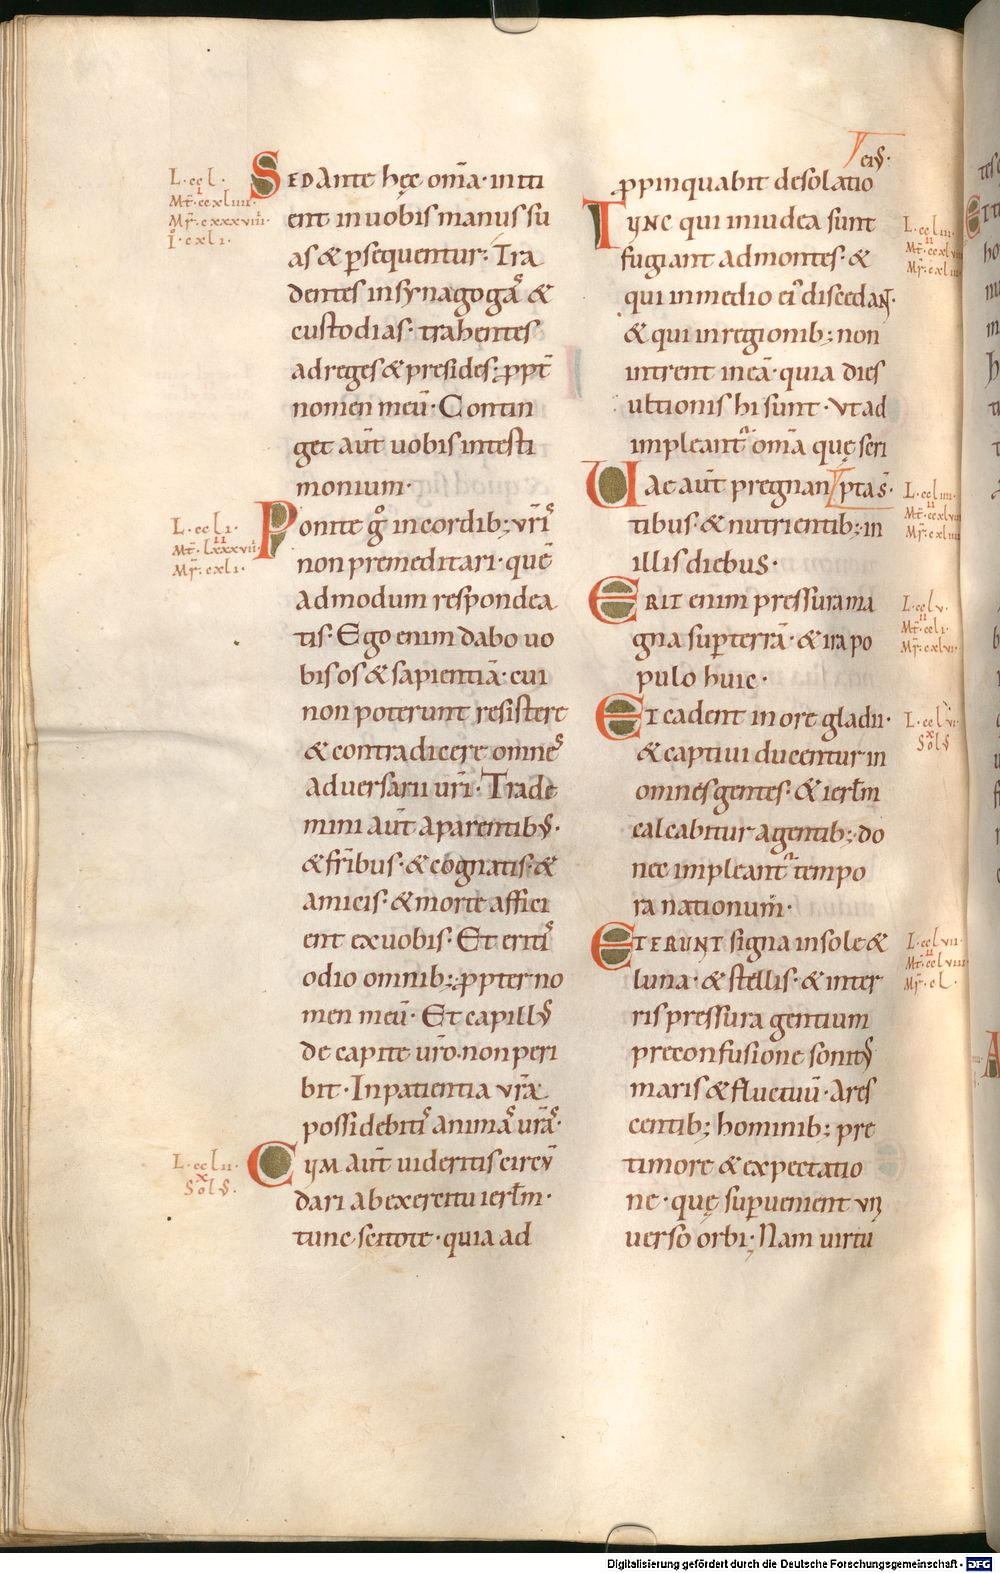 L·ccl·
I
Mt̄·ccxliiii·
Mr̄·cxxxviii·
I·cxli·
SED Ante hęc om̄a· initi
ent inuobis manus su
as & p̱sequentur· Tra
dentes insynagogas &
custodias· trahentes
adreges & presides· ꝓpt̄
nomen meū· Contin
get aūt uobis intesti
monium·
L·ccli·
II
Mt̄·lxxxvii·
Mr̄·cxli·
Ponite gͦ incordib; vr̄is
non premeditari· quē
admodum respondea
tis· Ego enim dabo uo
bis os & sapientiā· cui
non poterunt resistere
& contradicere omnes
aduersarii uri· Trade
mini aūt aparentibus·
& fr̄ibus· & cognatis· &
amicis· & morte affici
ent exuobis· Et eritis
odio omnib; ꝓpter no
men meū· Et capillus
de capite ur̄o· non peri
bit· Inpatientia vr̄a
possidebitis animas urās·
L·cclii·
X
Solus·
CUM aūt uideritis circū
dari abexercitu ierl̄m·
tunc scitote· quia ad
eius·
ꝓpinquabit desolatio
TUNC qui iniudea sunt
fugiant admontes· &
qui inmedio eiꝰ discedant·
& qui inregionib; non
intrent ineā· quia dies
ultionis hi sunt· Vt ad
impleant᷑ om̄a quę scri
pta s̄·
L·ccliii·
II
Mt̄·ccxlvii
Mr̄·cxliii
Uae aūt pregnan
tibus· & nutrientib; in
illis diebus·
L·ccliiii·
II
Mt̄·ccxlviii
Mr̄·cxliiii
ERIT enim pressura ma
gna sup̱terrā· & ira po
pulo huic·
L·cclv·
II
Mt̄·ccli·
Mr̄·cxlvi·
Et cadent in ore gladii·
& captiui ducentur in
omnes gentes· & ierl̄m
calcabitur agentib; do
nec impleant᷑ tempo
ra nationum·
L·cclvi·
X
Solus
ETERUNT signa insole &
luna· & stellis· & inter
ris pressura gentium
preconfusione sonitus
maris & fluctuū· Ares
centib; hominib; pre
timore & expectatio
ne· quę sup̱uenient vni
uerso orbi· Nam uirtu
L·cclvii·
II
Mt̄·cclviii
Mr̄·cl·
Digitalisierung gefördert durch die Deutsche Forschungsgemeinschaft - DFG